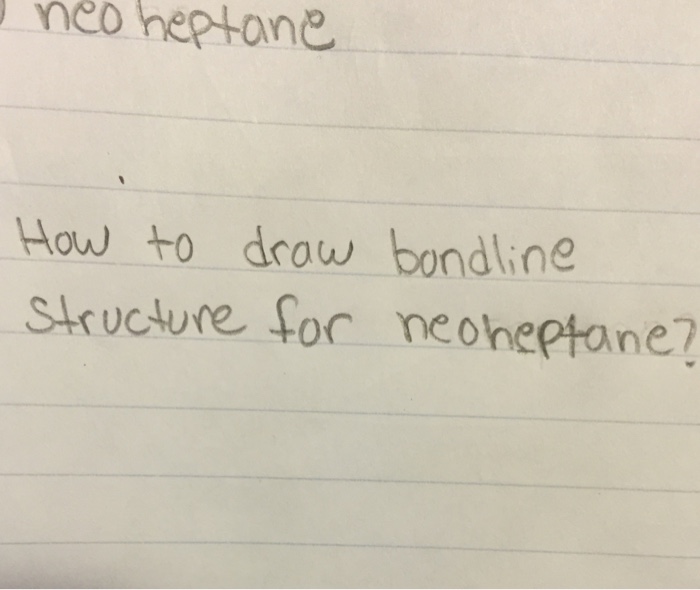 neoheptane
How to draw bondline
structure for neoheptane?